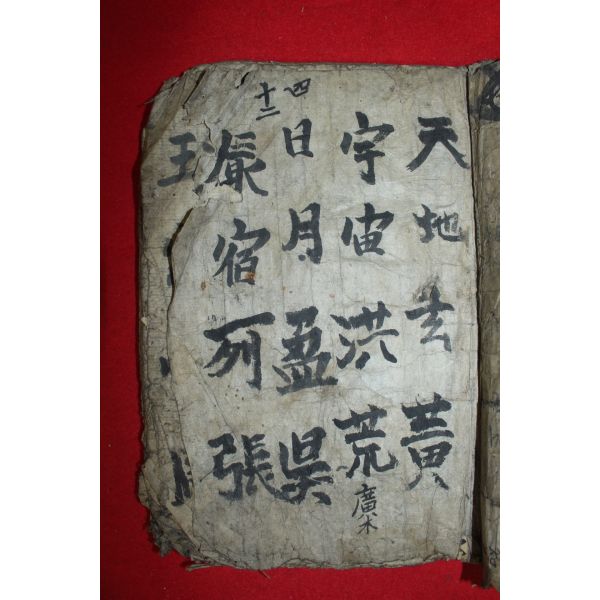 天地玄黃
宇宙洪荒
廣木
四
十二
日月盈昃
辰宿列張